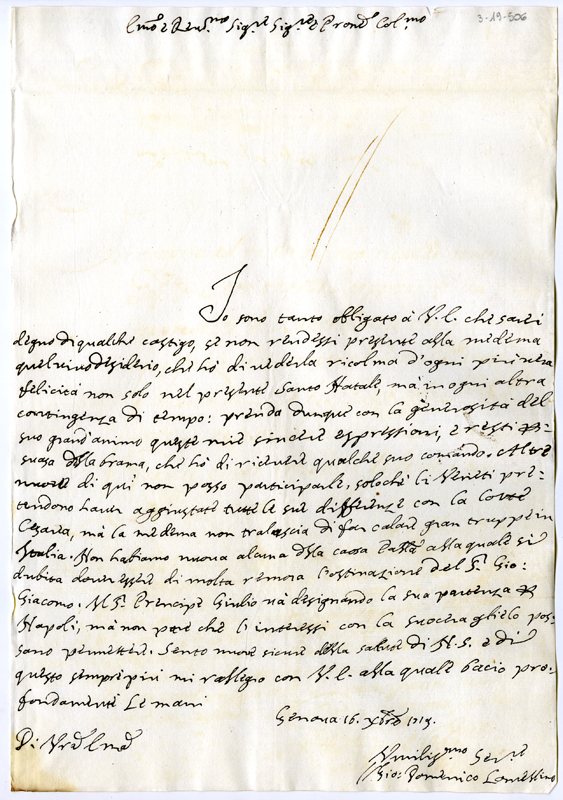 3-19-506
Em̃o e Reu.mo Sig.re Sig.re e Prone Col.mo
Io sono tanto obligato à V. E. che sarei
degno di qualche castigo, se non rendessi presente alla medema
quel viuo desiderio, che hò di uederla ricolma d'ogni più uera
felicità non solo nel presente Santo Natale, mà in ogni altra
contingenza di tempo: prenda dunque con la generosità del
suo grand'animo queste mie sincere espressioni, e resti per-
suasa della brama, che hò di riceuere qualche suo comando. Altre
nuoue di qui non posso participarle, solo che li Veneti pre-
tendono hauer aggiustate tutte le sue differenze con la Corte
Cesarea, mà la medema non tralascia di far calare gran truppe in
Italia. Non habbiamo nuoua alcuna della causa alla quale si
dubita douer essere di molta remora l'ostinazione del S.r Gio:
Giacomo. Il S.r Principe Giulio uà designando la sua partenza per
Napoli, mà non pare che li interessi con la suocera glielo pos-
sano permettere. Sento nuoue sicure della salute di N. S. e di
questo sempre più mi rallegro con V. E. alla quale bacio pro-
fondamente le mani
Genoua 16. Xbre
Di Vra Em̃a
Vmilis.mo Ser.re
Gio: Domenico